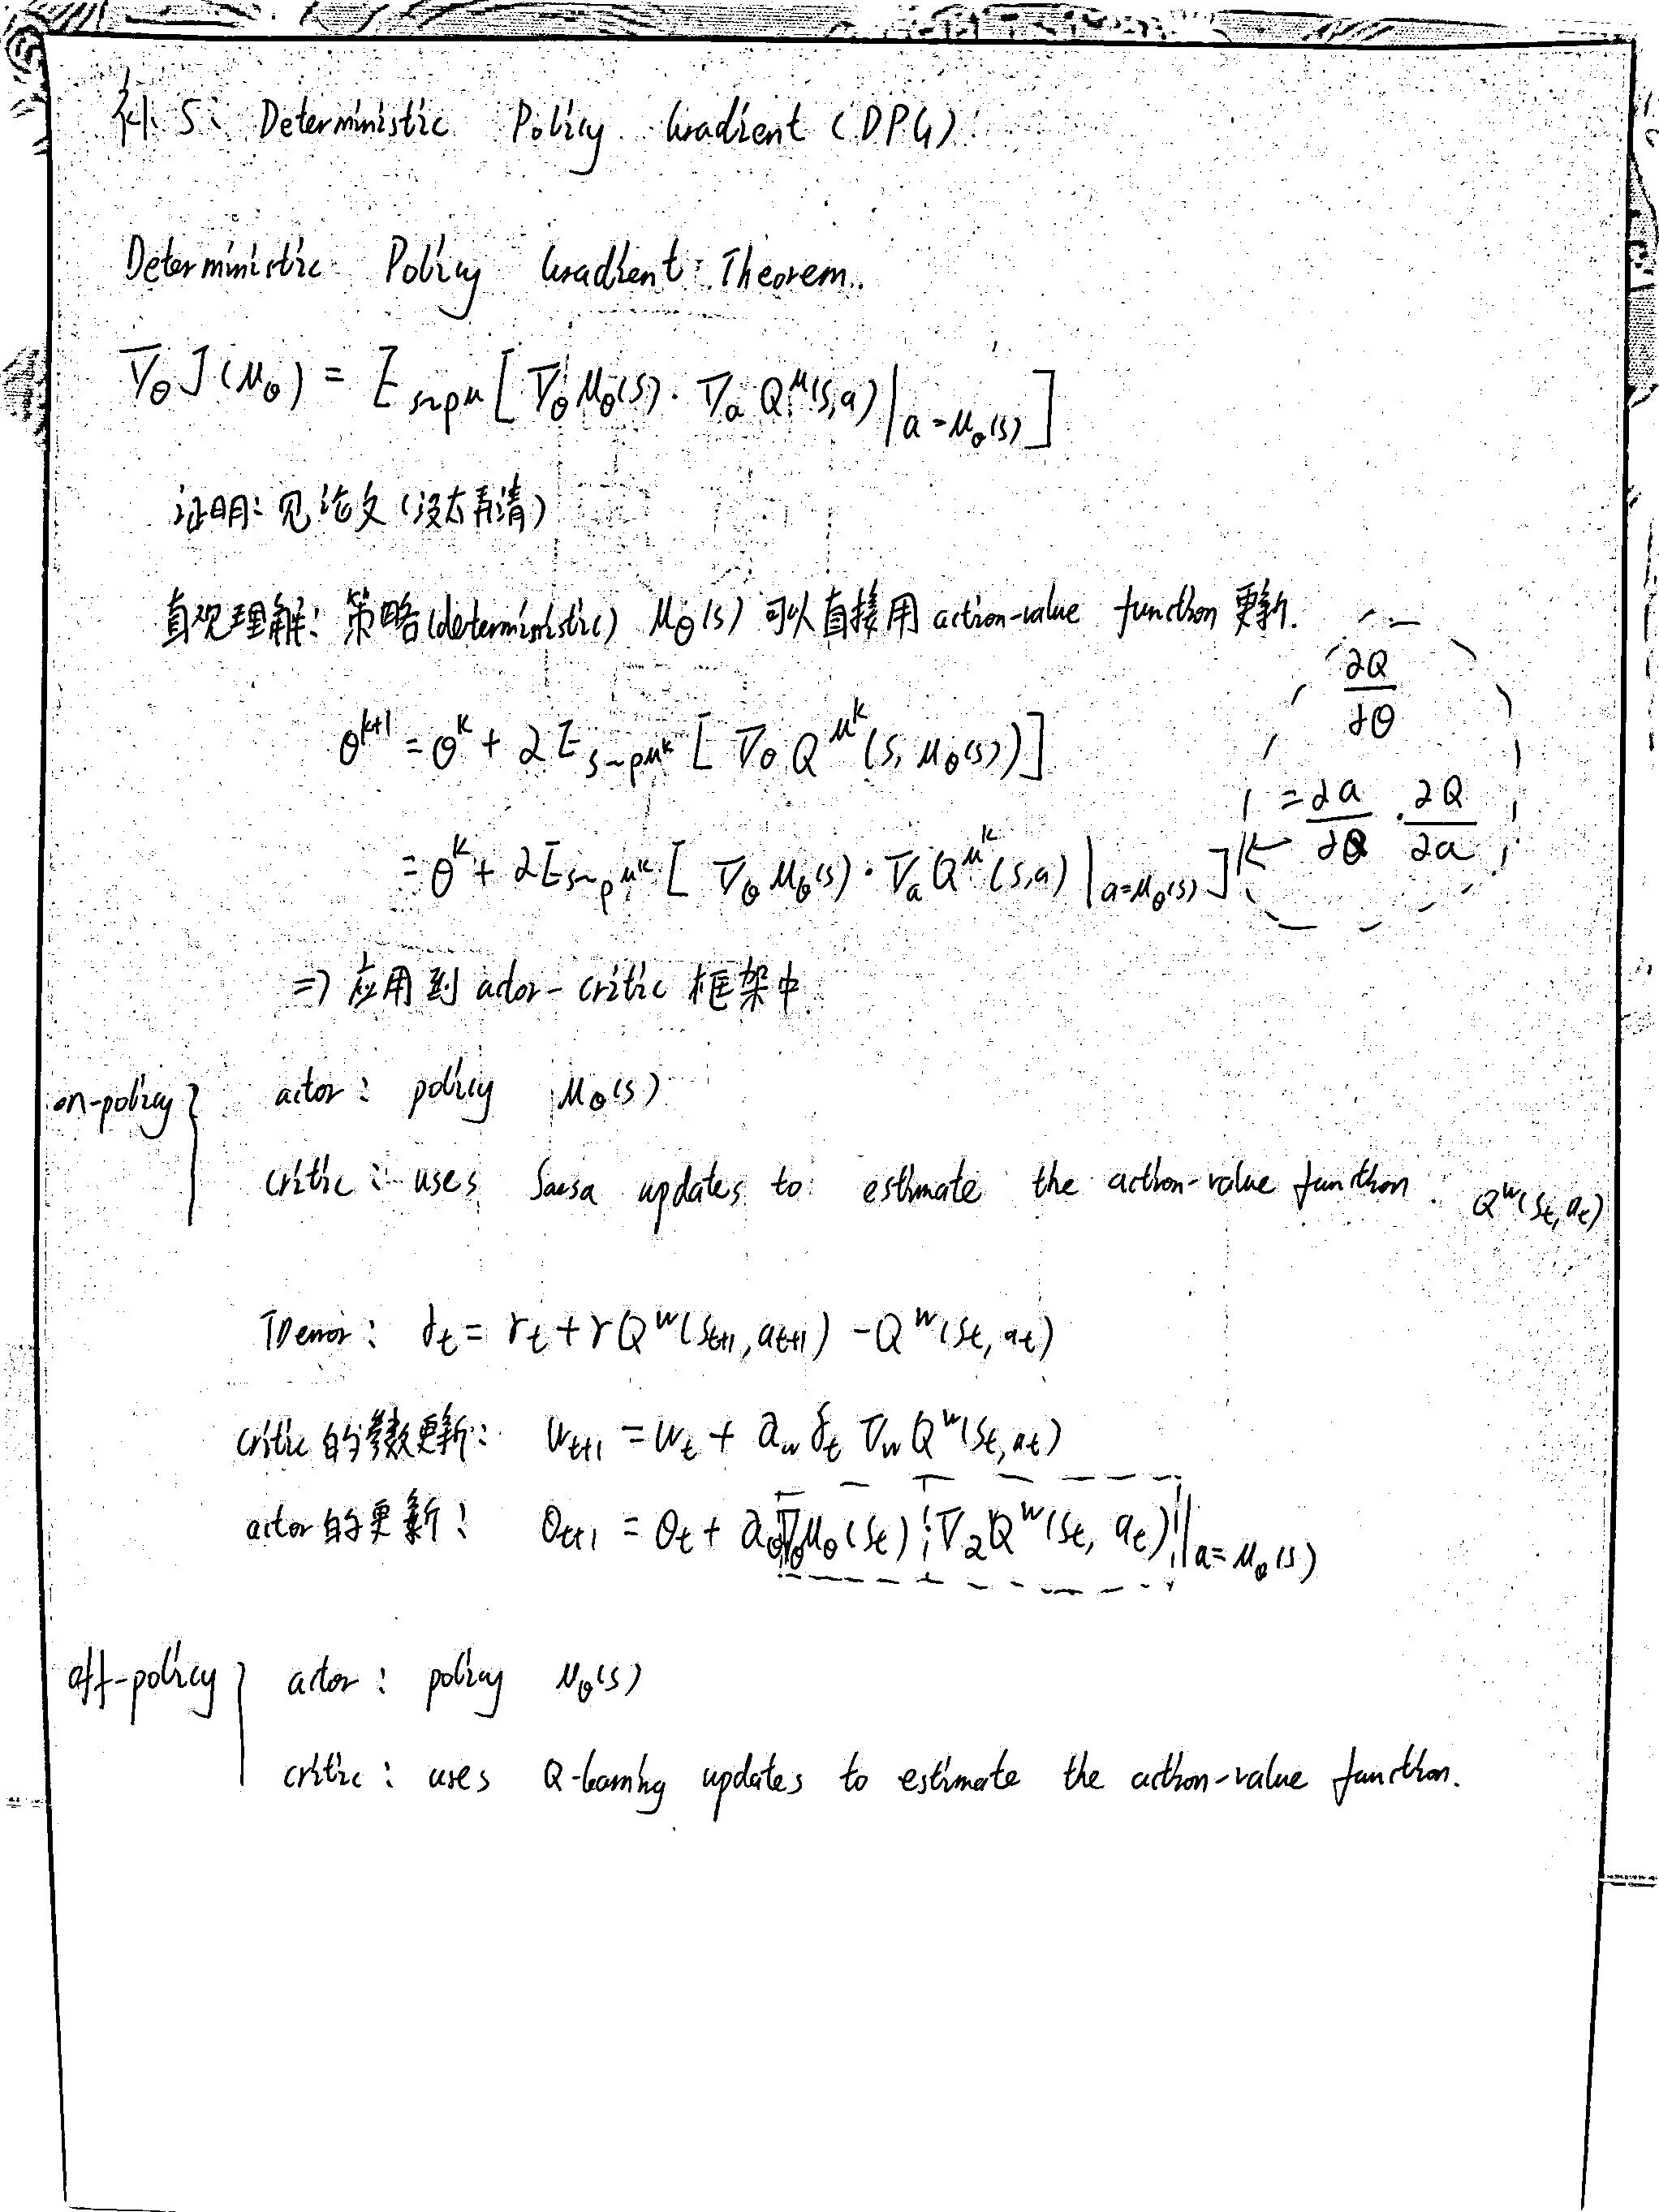 补5: Deterministic Policy Gradient (DPG)
Deterministic Policy Gradient Theorem.
∇θ J(μθ) = E s~ρ^μ [ ∇θ μθ(s) · ∇a Q^μ(s,a) | a=μθ(s) ]
证明: 见论文 (没太看清)
直观理解: 策略(deterministic) μθ(s) 可以直接用 action-value function 更新.
θ^{k+1} = θ^k + α E s~ρ^{μ^k} [ ∇θ Q^{μ^k} (s, μθ(s)) ]
∂Q/∂θ
= θ^k + α E s~ρ^{μ^k} [ ∇θ μθ(s) · ∇a Q^{μ^k} (s,a) | a=μθ(s) ]
= ∂a/∂θ · ∂Q/∂a
⇒ 应用到 actor-critic 框架中
on-policy { actor: policy μθ(s)
critic: uses Sarsa updates to estimate the action-value function Q^w(st, at)
TD error: δt = rt + γ Q^w(st+1, at+1) - Q^w(st, at)
critic的参数更新: wt+1 = wt + αw δt ∇w Q^w(st, at)
actor的更新: θt+1 = θt + αθ ∇θ μθ(st) ∇a Q^w(st, at) | a=μθ(s)
off-policy { actor: policy μθ(s)
critic: uses Q-learning updates to estimate the action-value function.